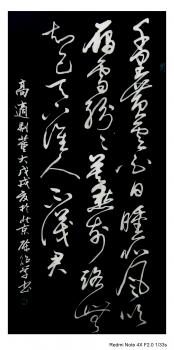 千里黄雲白日曛北風吹
雁雪紛〻莫愁前路無
知己天下誰人不識君
高適别董大戊戌夏於北京
Redmi Note 4X F2.0 1/33s